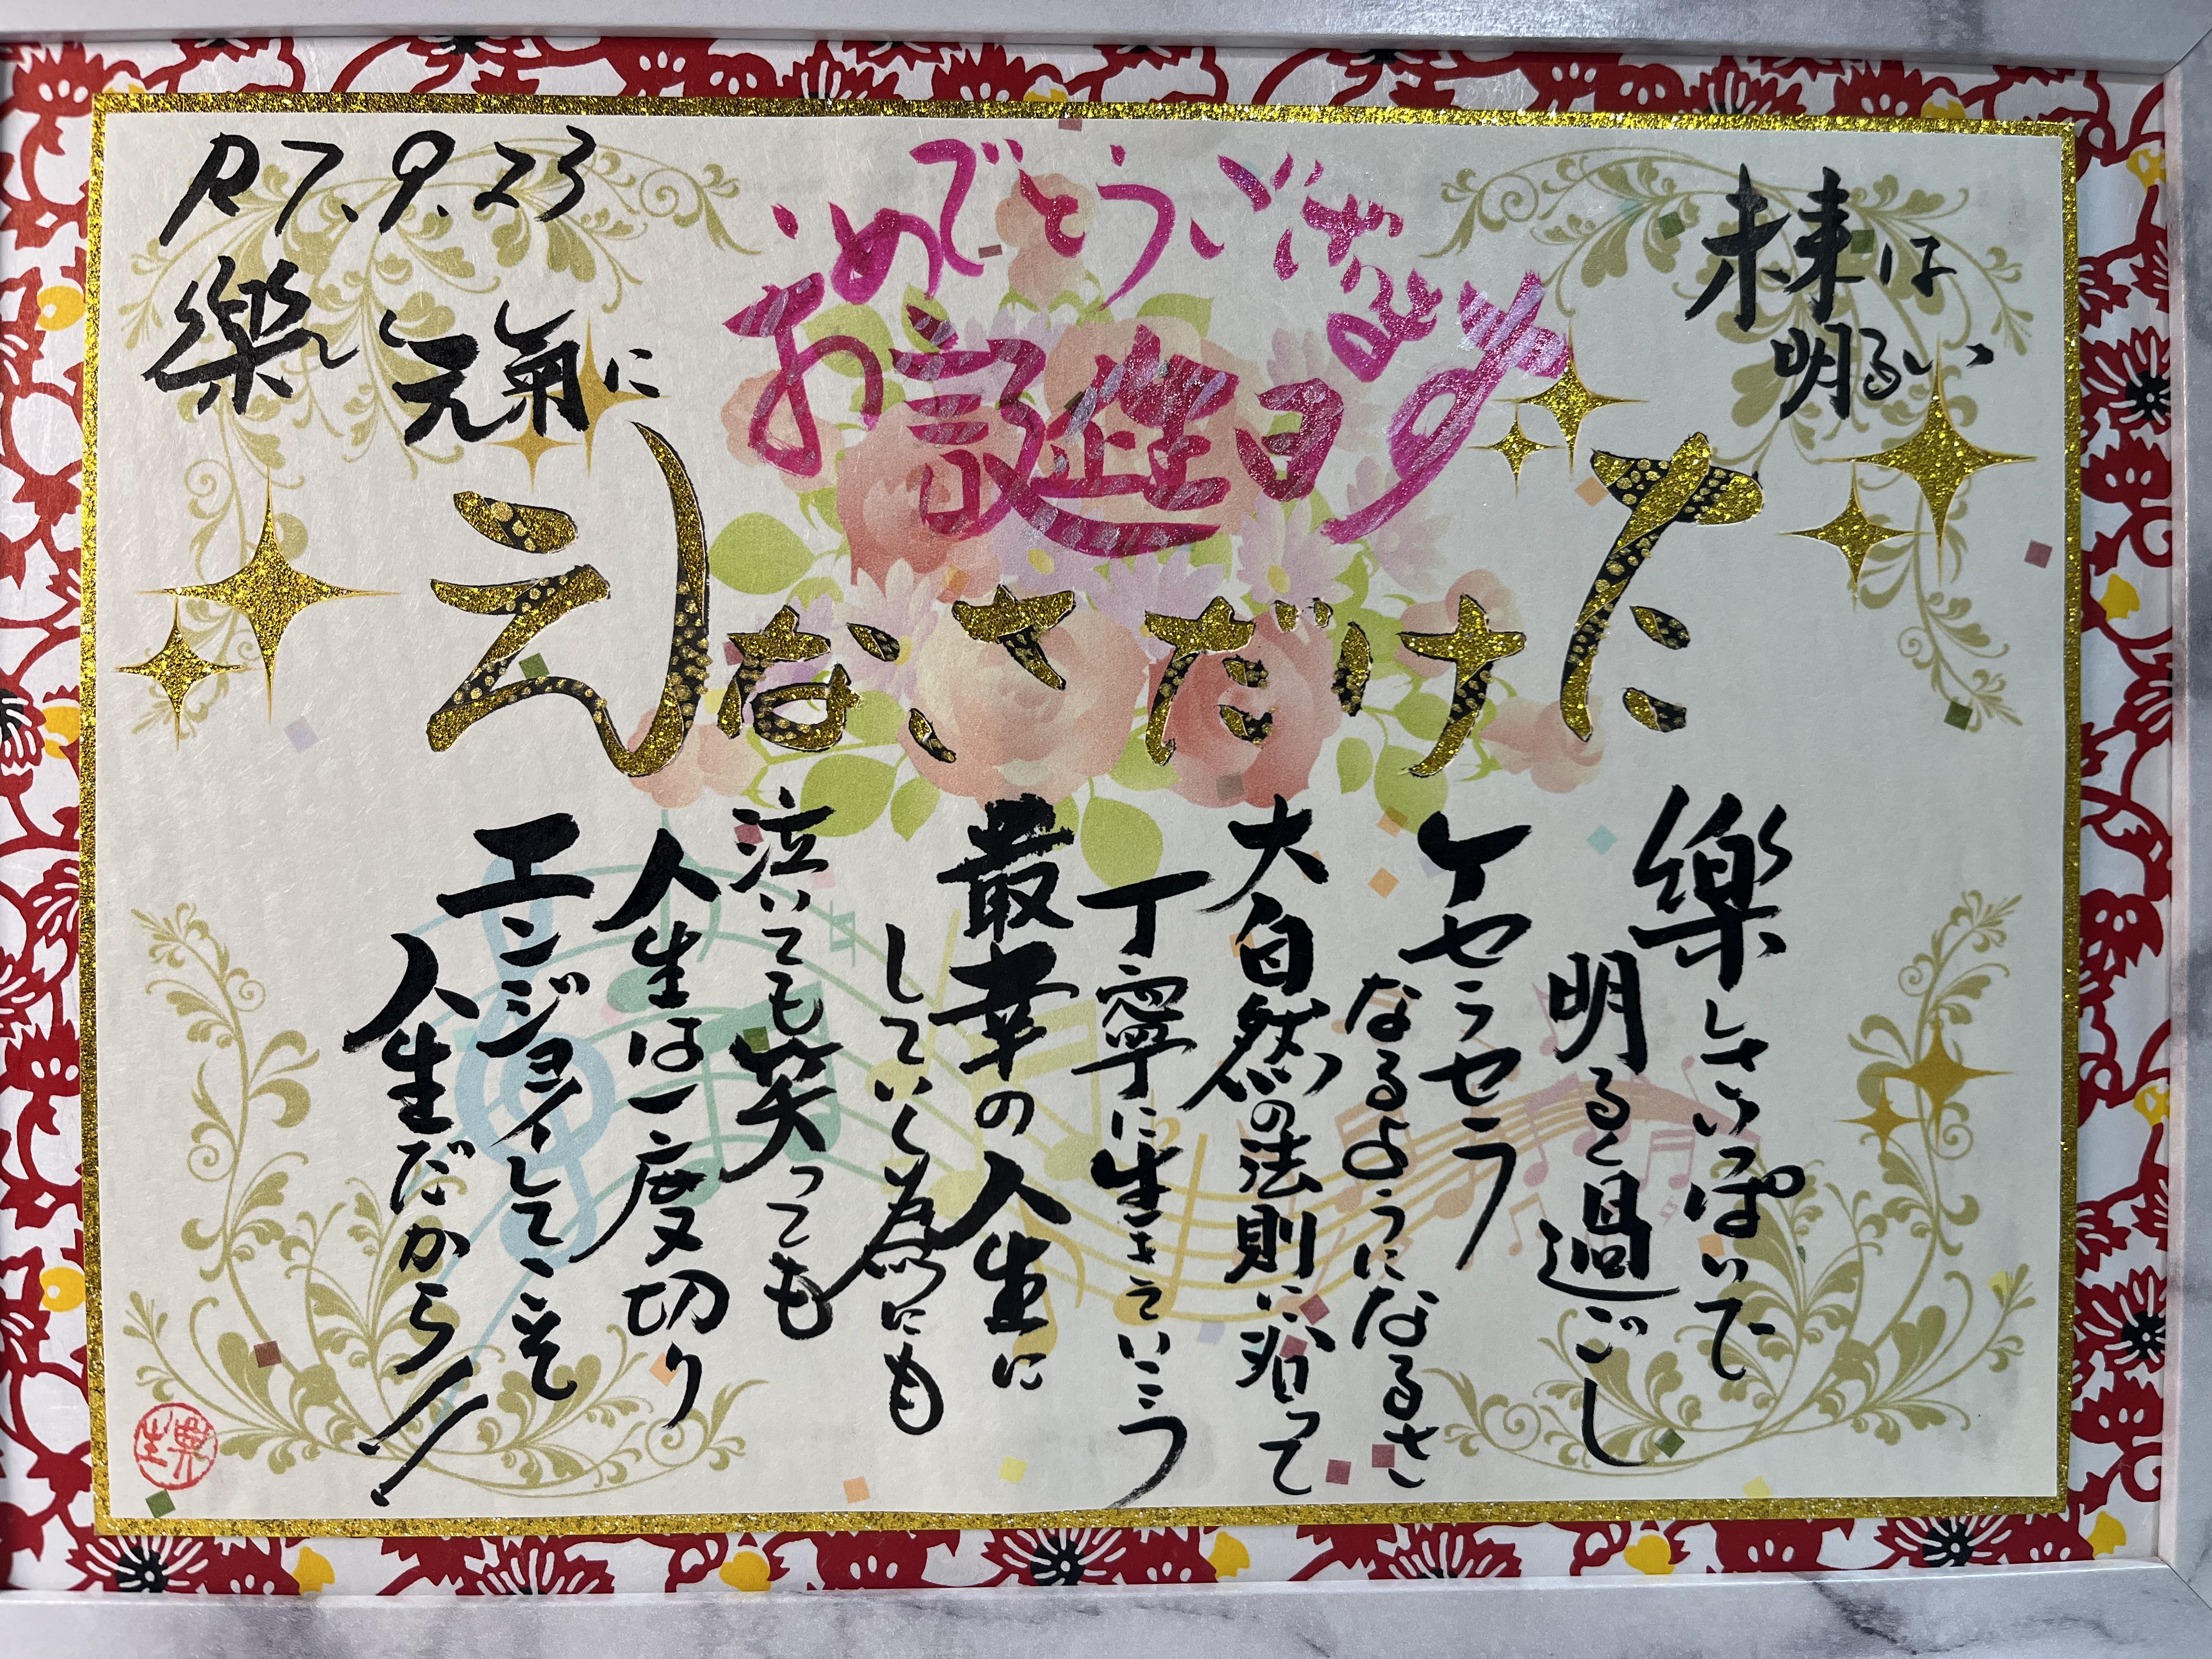 未来は
明るい
お誕生日
おめでとうございます
R7.9.23
樂しく
元氣に
たけださなえ
樂しさいっぱいで
明るく過ごし
ケセラセラ
なるようになるさ
大自然の法則に沿って
丁寧に生きていこう
最幸の人生に
していく為にも
泣いても笑っても
人生は一度切り
エンジョイしてこそ
人生だから!!